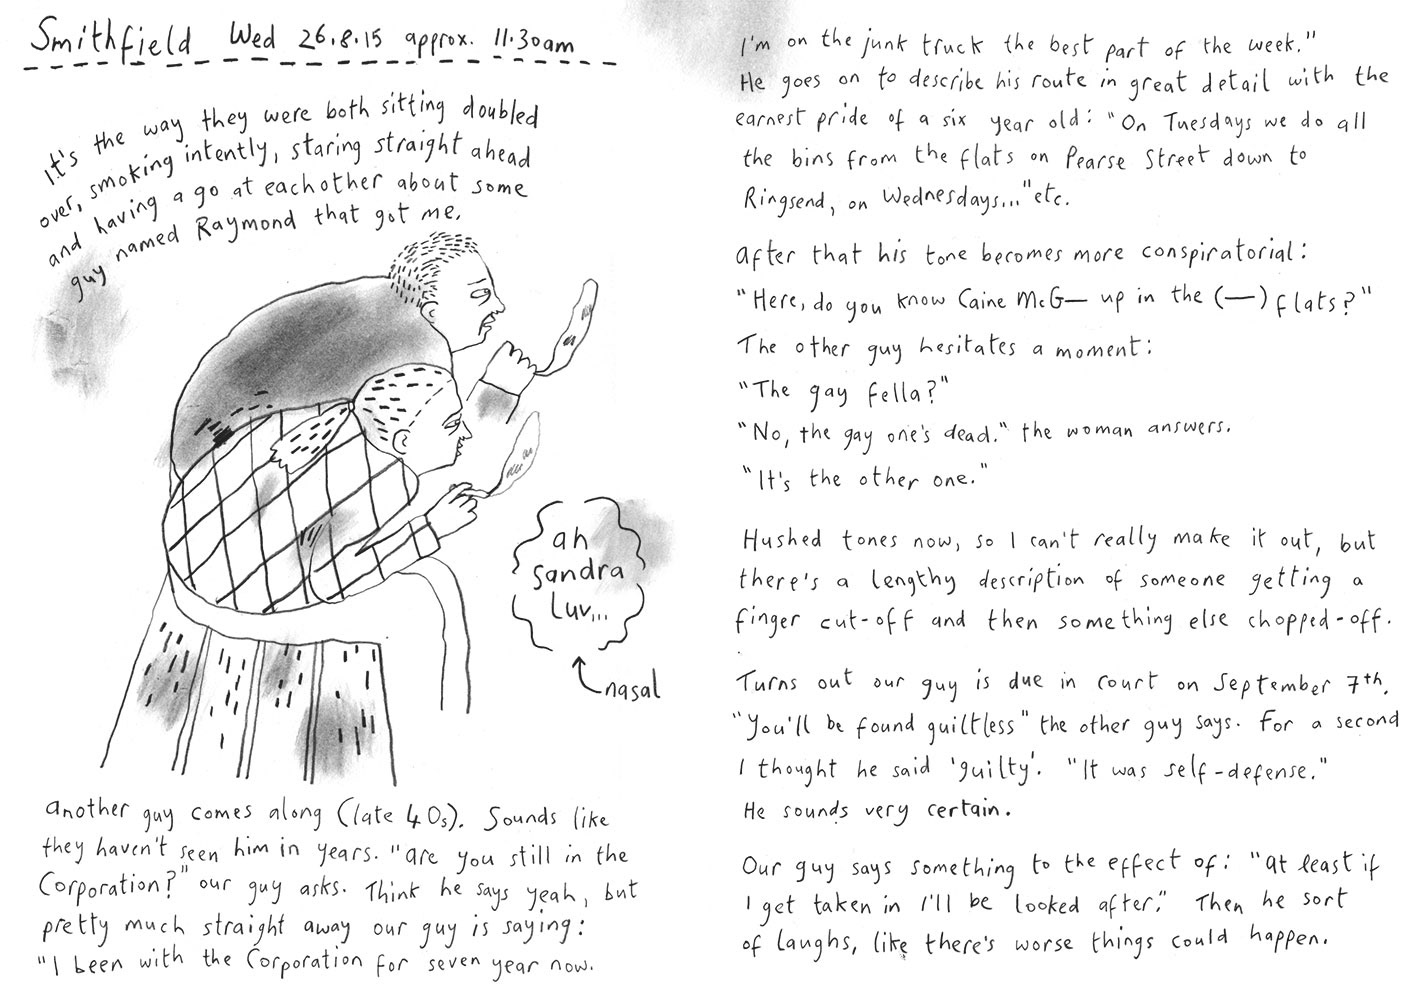 Smithfield Wed 26.8.15 approx. 11.30am
It's the way they were both sitting doubled
over, smoking intently, staring straight ahead
and having a go at eachother about some
guy named Raymond that got me.
ah
sandra
luv...
nasal
another guy comes along (late 40s). Sounds like
they haven't seen him in years. "are you still in the
Corporation?" our guy asks. Think he says yeah, but
pretty much straight away our guy is saying:
"I been with the Corporation for seven year now.
I'm on the junk truck the best part of the week."
He goes on to describe his route in great detail with the
earnest pride of a six year old: "On Tuesdays we do all
the bins from the flats on Pearse Street down to
Ringsend, on Wednesdays..." etc.
after that his tone becomes more conspiratorial:
"Here, do you know Caine McG— up in the (—) flats?"
The other guy hesitates a moment:
"The gay fella?"
"No, the gay one's dead." the woman answers.
"It's the other one."
Hushed tones now, so I can't really make it out, but
there's a lengthy description of someone getting a
finger cut-off and then something else chopped-off.
Turns out our guy is due in court on September 7th.
"You'll be found guiltless" the other guy says. For a second
I thought he said 'guilty'. "It was self-defense."
He sounds very certain.
Our guy says something to the effect of: "at least if
I get taken in I'll be looked after." Then he sort
of laughs, like there's worse things could happen.